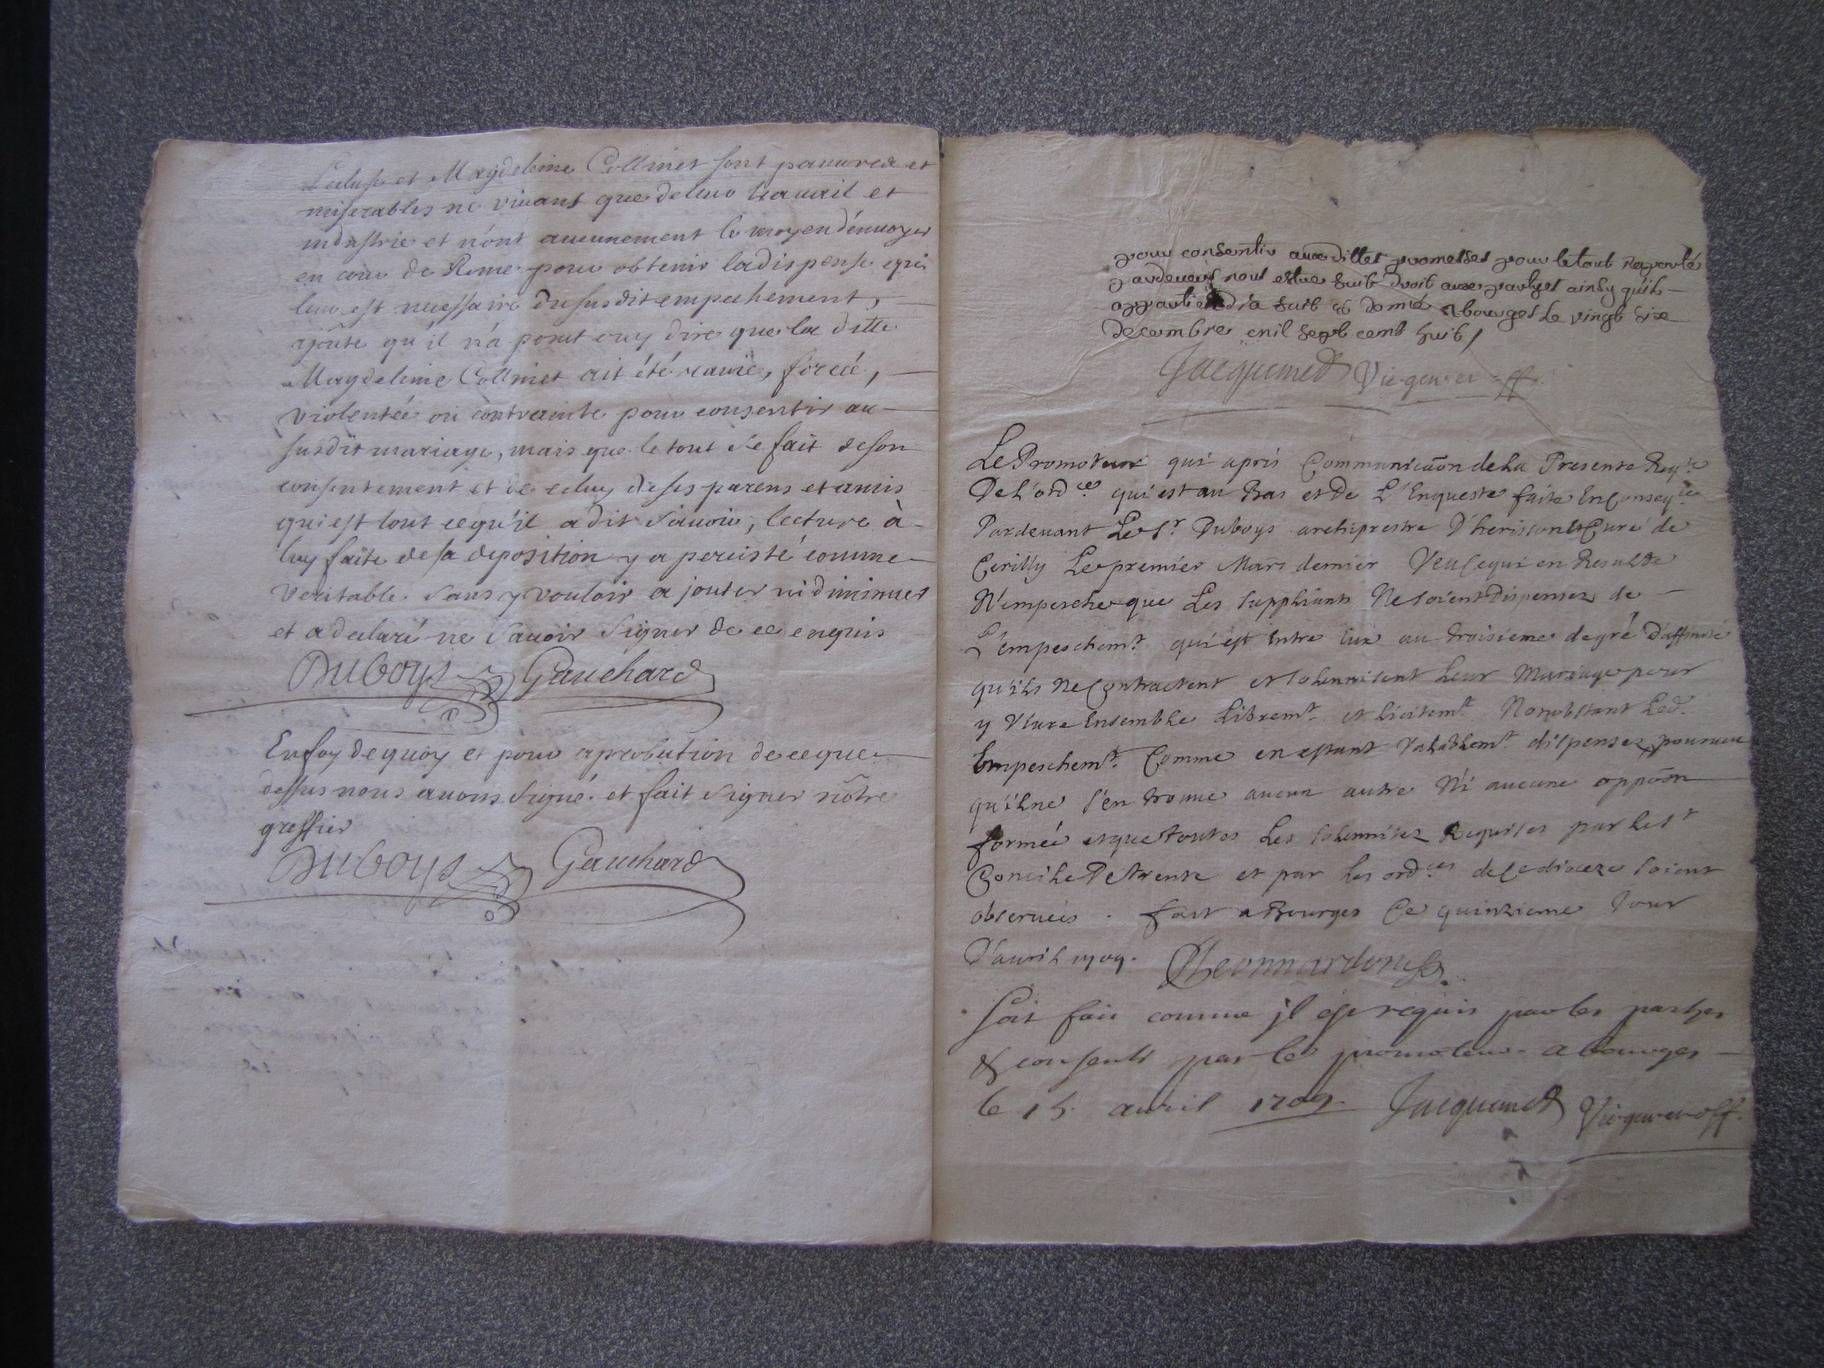 et Magdeleine Collinet sont pauures et
miserables ne viuant que de leur trauail et
industrie et n'ont aucunement le moyen d'enuoyer
en cour de Rome pour obtenir la dispense qui
leur est necessaire du susdit empechement,
ajoute qu'il n'a point ouy dire que la ditte
Magdeleine Collinet ait été rauie, forcée,
violentée ou contrainte pour consentir au
susdit mariage, mais que le tout se fait de son
consentement et de celuy de ses parens et amis
qui est tout ce qu'il a dit sauoir, lecture à
luy faite de sa deposition y a percisté comme
veritable sans y vouloir ajouter ni diminuer
et a declaré ne sauoir signer de ce enquis
Duboys Gauchard
En foy de quoy et pour aprobation de ce que
dessus nous auons signé et fait signer nôtre
greffier
Duboys Gauchard
pour consentir aux dittes promesses pour le tout raporté
pardeuers nous estre fait droit aux parties ainsy quil
appartiendra fait & donné a bourges le vingt six
decembre mil sept cent huit
Jacquemet Vicegerent off.
Le Promoteur qui apris Communica͠on de la Presente Reqte
De l'ordce qui est au Bas et de L'Enqueste faite En Conseqce
Pardeuant Le Sr Duboys archiprestre D'herisson et Curé de
Cerilly Le premier Mars dernier Veu Ce qui en Resulte
N'empesche que Les suppliants Ne soient Dispensez de
L'empeschemt qui est Entre Eux au troisieme degré D'affinité
qu'ils Ne Contractent et solennisent Leur Mariage pour
y Viure Ensemble Libremt et licitemt Nonobstant Led.
Empeschemt Comme en estant Valablemt dispensez pourueu
qu'il ne s'en trouue aucun autre Ni aucune oppo͠on
formée et que toutes Les solennitez Requises par Le St
Concile De trente et par les ordces de Ce dioceze soient
obseruées. fait a Bourges Ce quinzieme Jour
D'auril 1709.
Soit fait comme il est requis par les parties
& consenti par le promoteur a bourges
le 15 auril 1709. Jacquemet Vicegerent off.